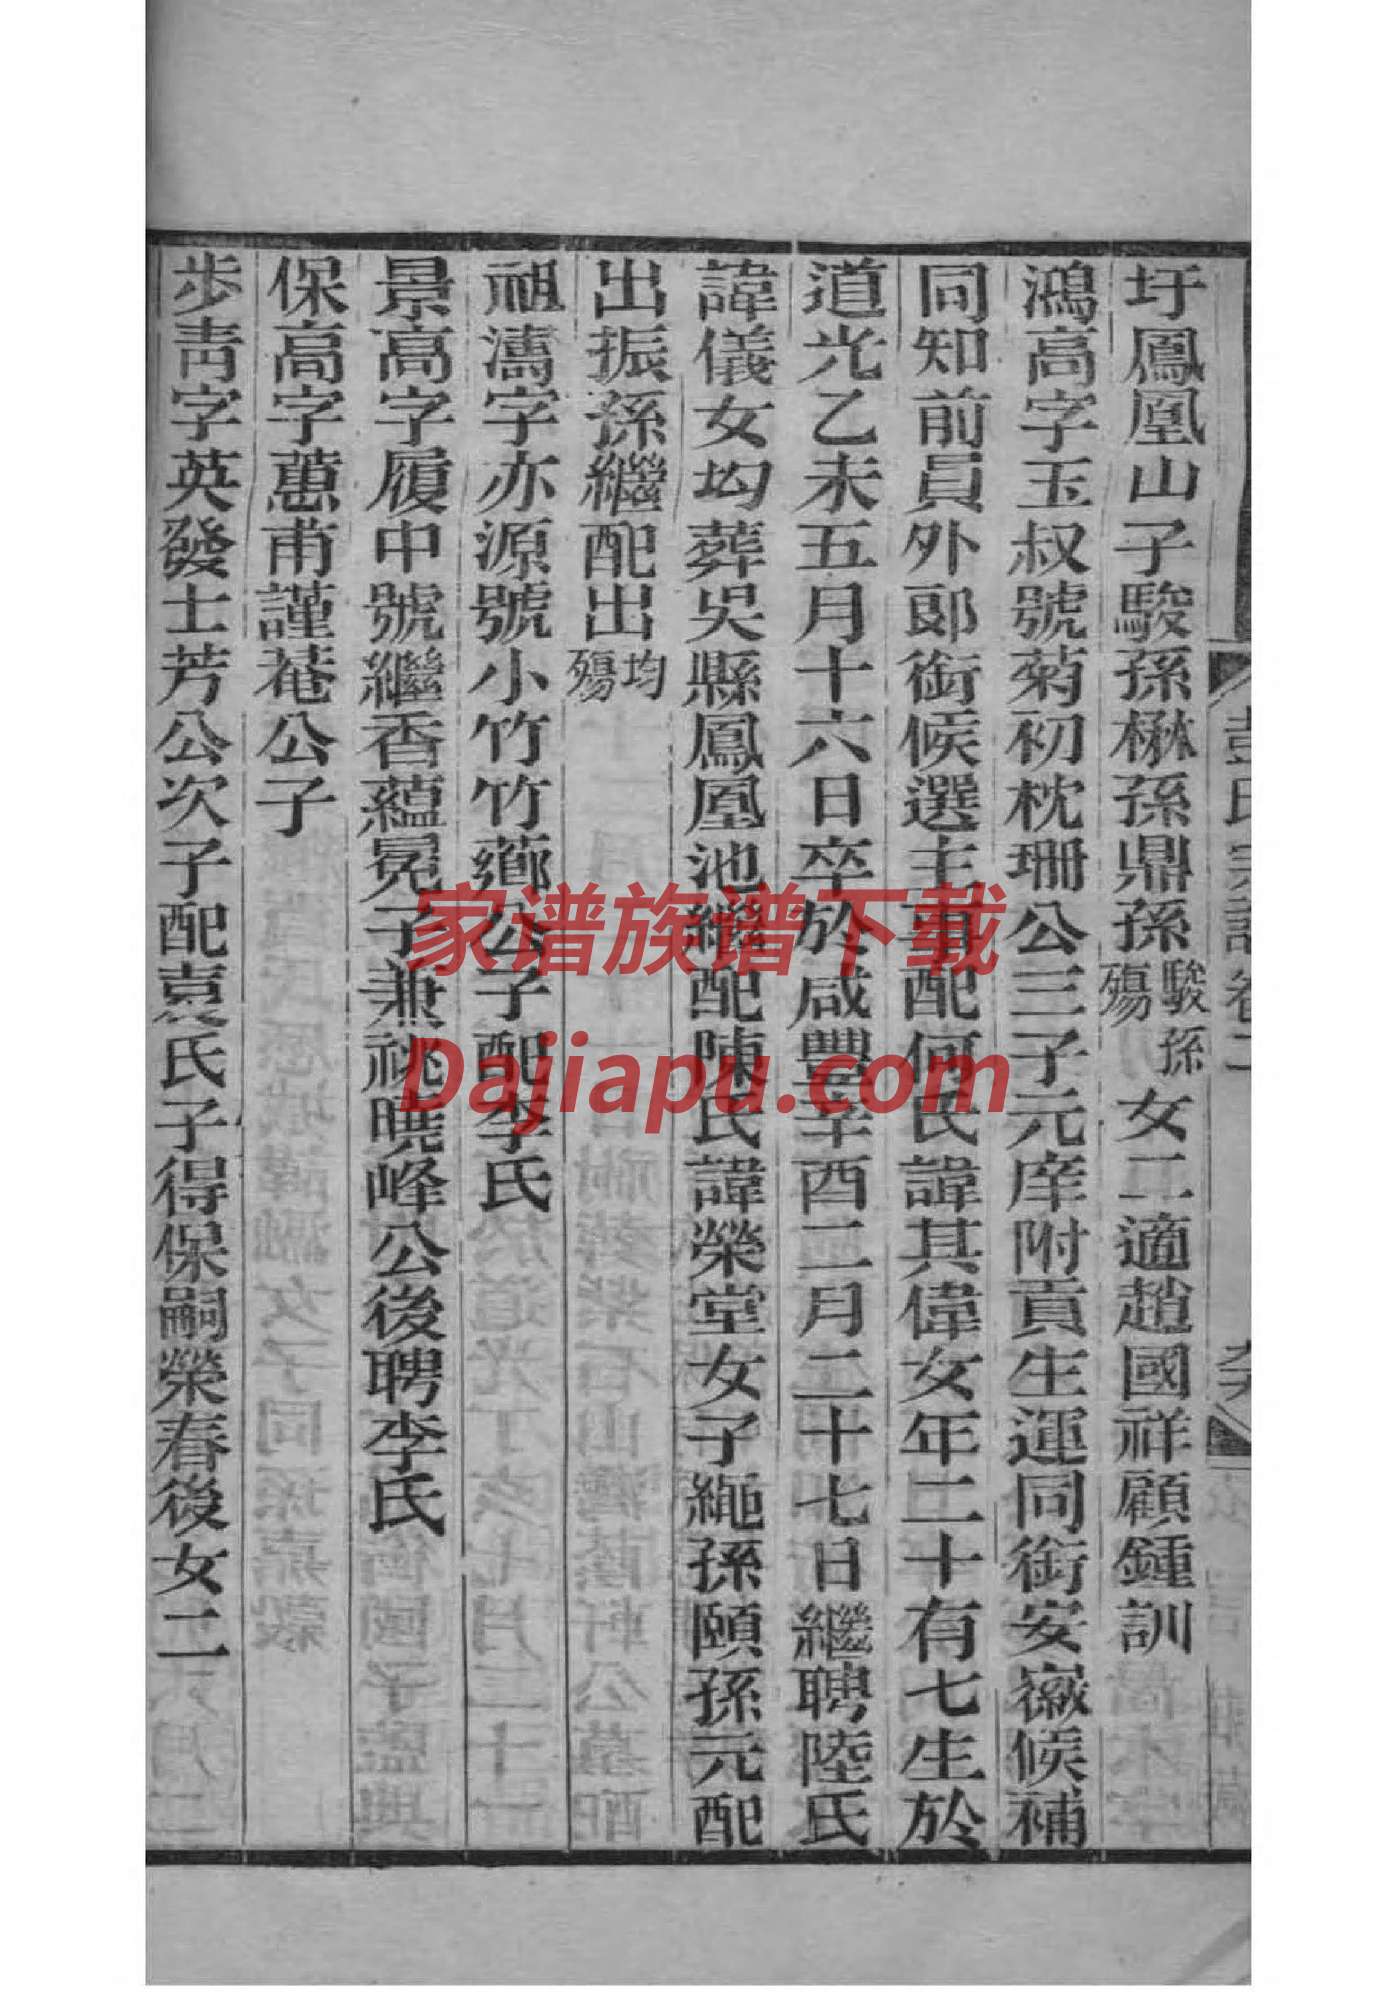 彭氏宗譜卷二
圩鳳凰山子駿孫楙孫鼎孫駿孫殤女二適趙國祥顧鍾訓
鴻高字玉叔號菊初枕珊公三子元庠附貢生運同銜安徽候補
同知前員外郎銜候選主事配何氏諱其偉女年二十有七生於
道光乙未五月十六日卒於咸豐辛酉二月二十七日繼聘陸氏
諱儀女均葬吳縣鳳凰池繼配陳氏諱榮堂女子繩孫頤孫元配
出振孫繼配出均殤
祖濤字亦源號小竹竹薌公子配李氏
景高字履中號繼香蘊冕子兼祧曉峰公後聘李氏
保高字蕙甫謹菴公子
步青字英發士芳公次子配袁氏子得保嗣榮春後女二
家谱族谱下载
Dajiapu.com